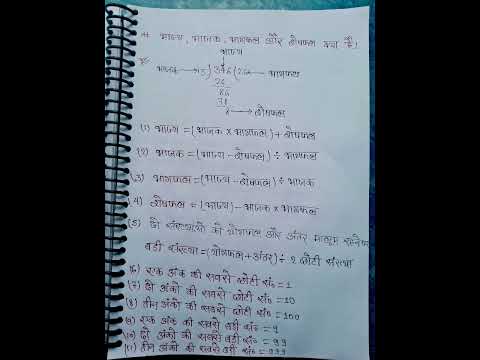 भाज्य, भाजक, भागफल और शेषफल क्या है।
भाज्य
भाजक
भागफल
शेषफल
(1) भाज्य = (भाजक × भागफल) + शेषफल
(2) भाजक = (भाज्य - शेषफल) ÷ भागफल
(3) भागफल = (भाज्य - शेषफल) ÷ भाजक
(4) शेषफल = (भाज्य) - भाजक × भागफल
(5) दो संख्याओ की योगफल और अंतर मालूम रहने पर
बडी संख्या = (योगफल + अंतर) ÷ 2 छोटी संख्या
(6) एक अंक की सबसे छोटी सं० = 1
(7) दो अंको की सबसे छोटी सं० = 10
(8) तीन अंको की सबसे छोटी सं० = 100
(9) एक अंक की सबसे बडी सं० = 9
(10) दो अंको की सबसे बडी सं० = 99
(11) तीन अंको की सबसे बडी सं० = 999